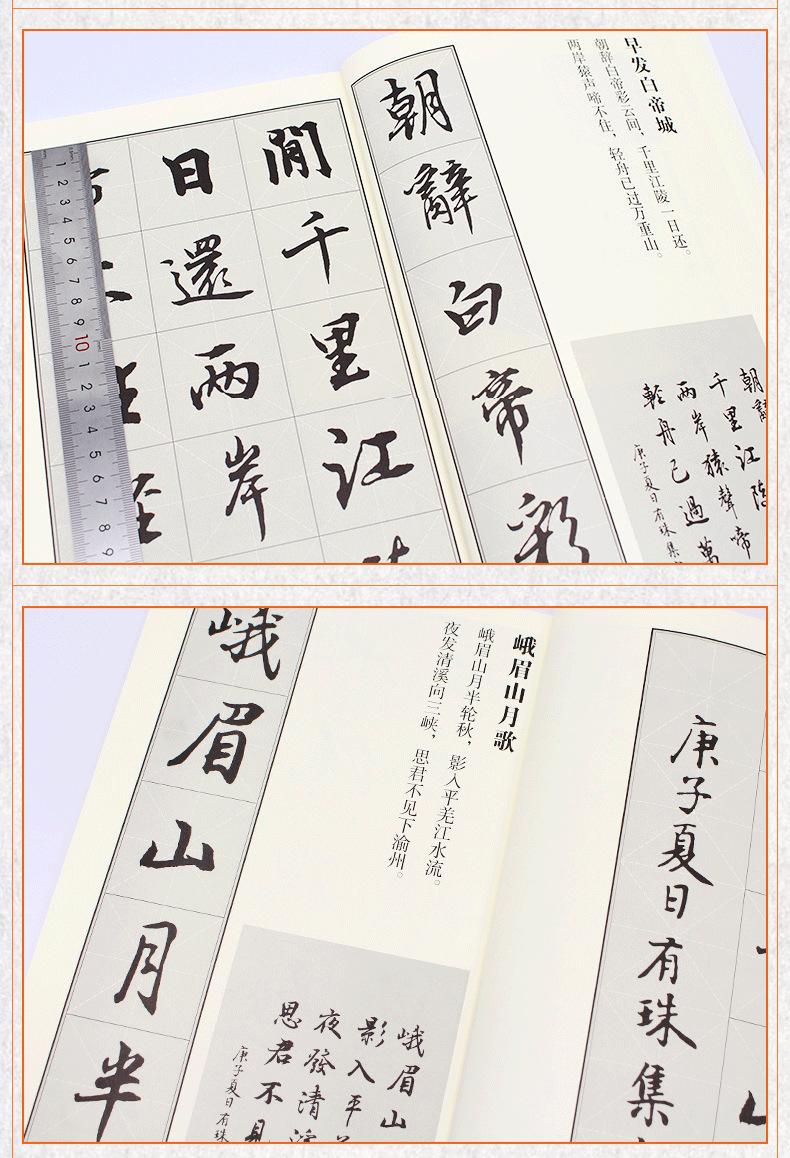 早发白帝城
朝辞白帝彩云间，千里江陵一日还。
两岸猿声啼不住，轻舟已过万重山。
朝辭
千里江陵
两岸猿聲啼
輕舟已過萬
庚子夏日有珠集
朝辭白帝彩
間千里江
日還两岸
1 2 3 4 5 6 7 8 9 10 1 2 3 4 5 6 7 8 9
庚子夏日有珠集
峨眉山月歌
峨眉山月半轮秋，影入平羌江水流。
夜发清溪向三峡，思君不见下渝州。
峨眉山
影入平
夜發清溪
思君不見
庚子夏日有珠
峨眉山月半